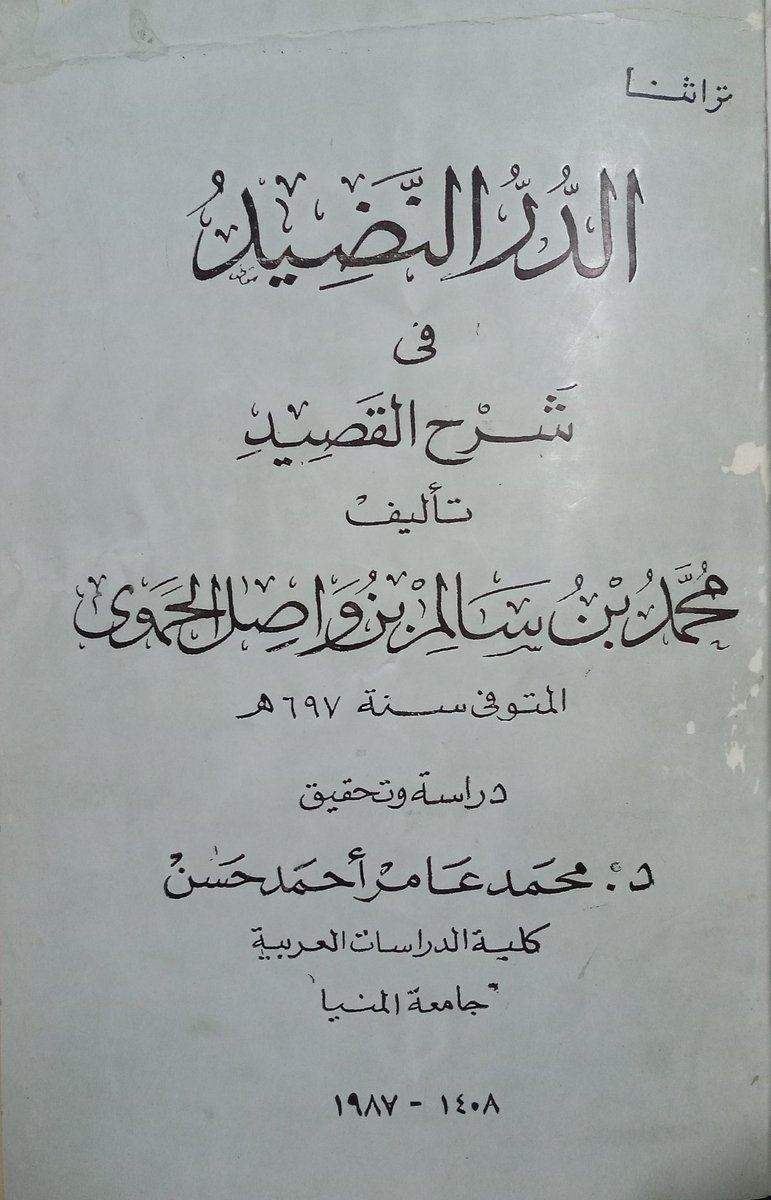 تراثنا
الدُّرُّ النَّضِيدُ
فى
شَرْح القَصِيدِ
تأليف
مُحَمَّدُ بْنُ سَالِمْ بْنُ وَاصِل الحَمَوى
المتوفى سنة ٦٩٧ هـ
دراسة وتحقيق
د. محمد عامر أحمد حسن
كلية الدراسات العربية
"جامعة المنيا"
١٤٠٨ - ١٩٨٧